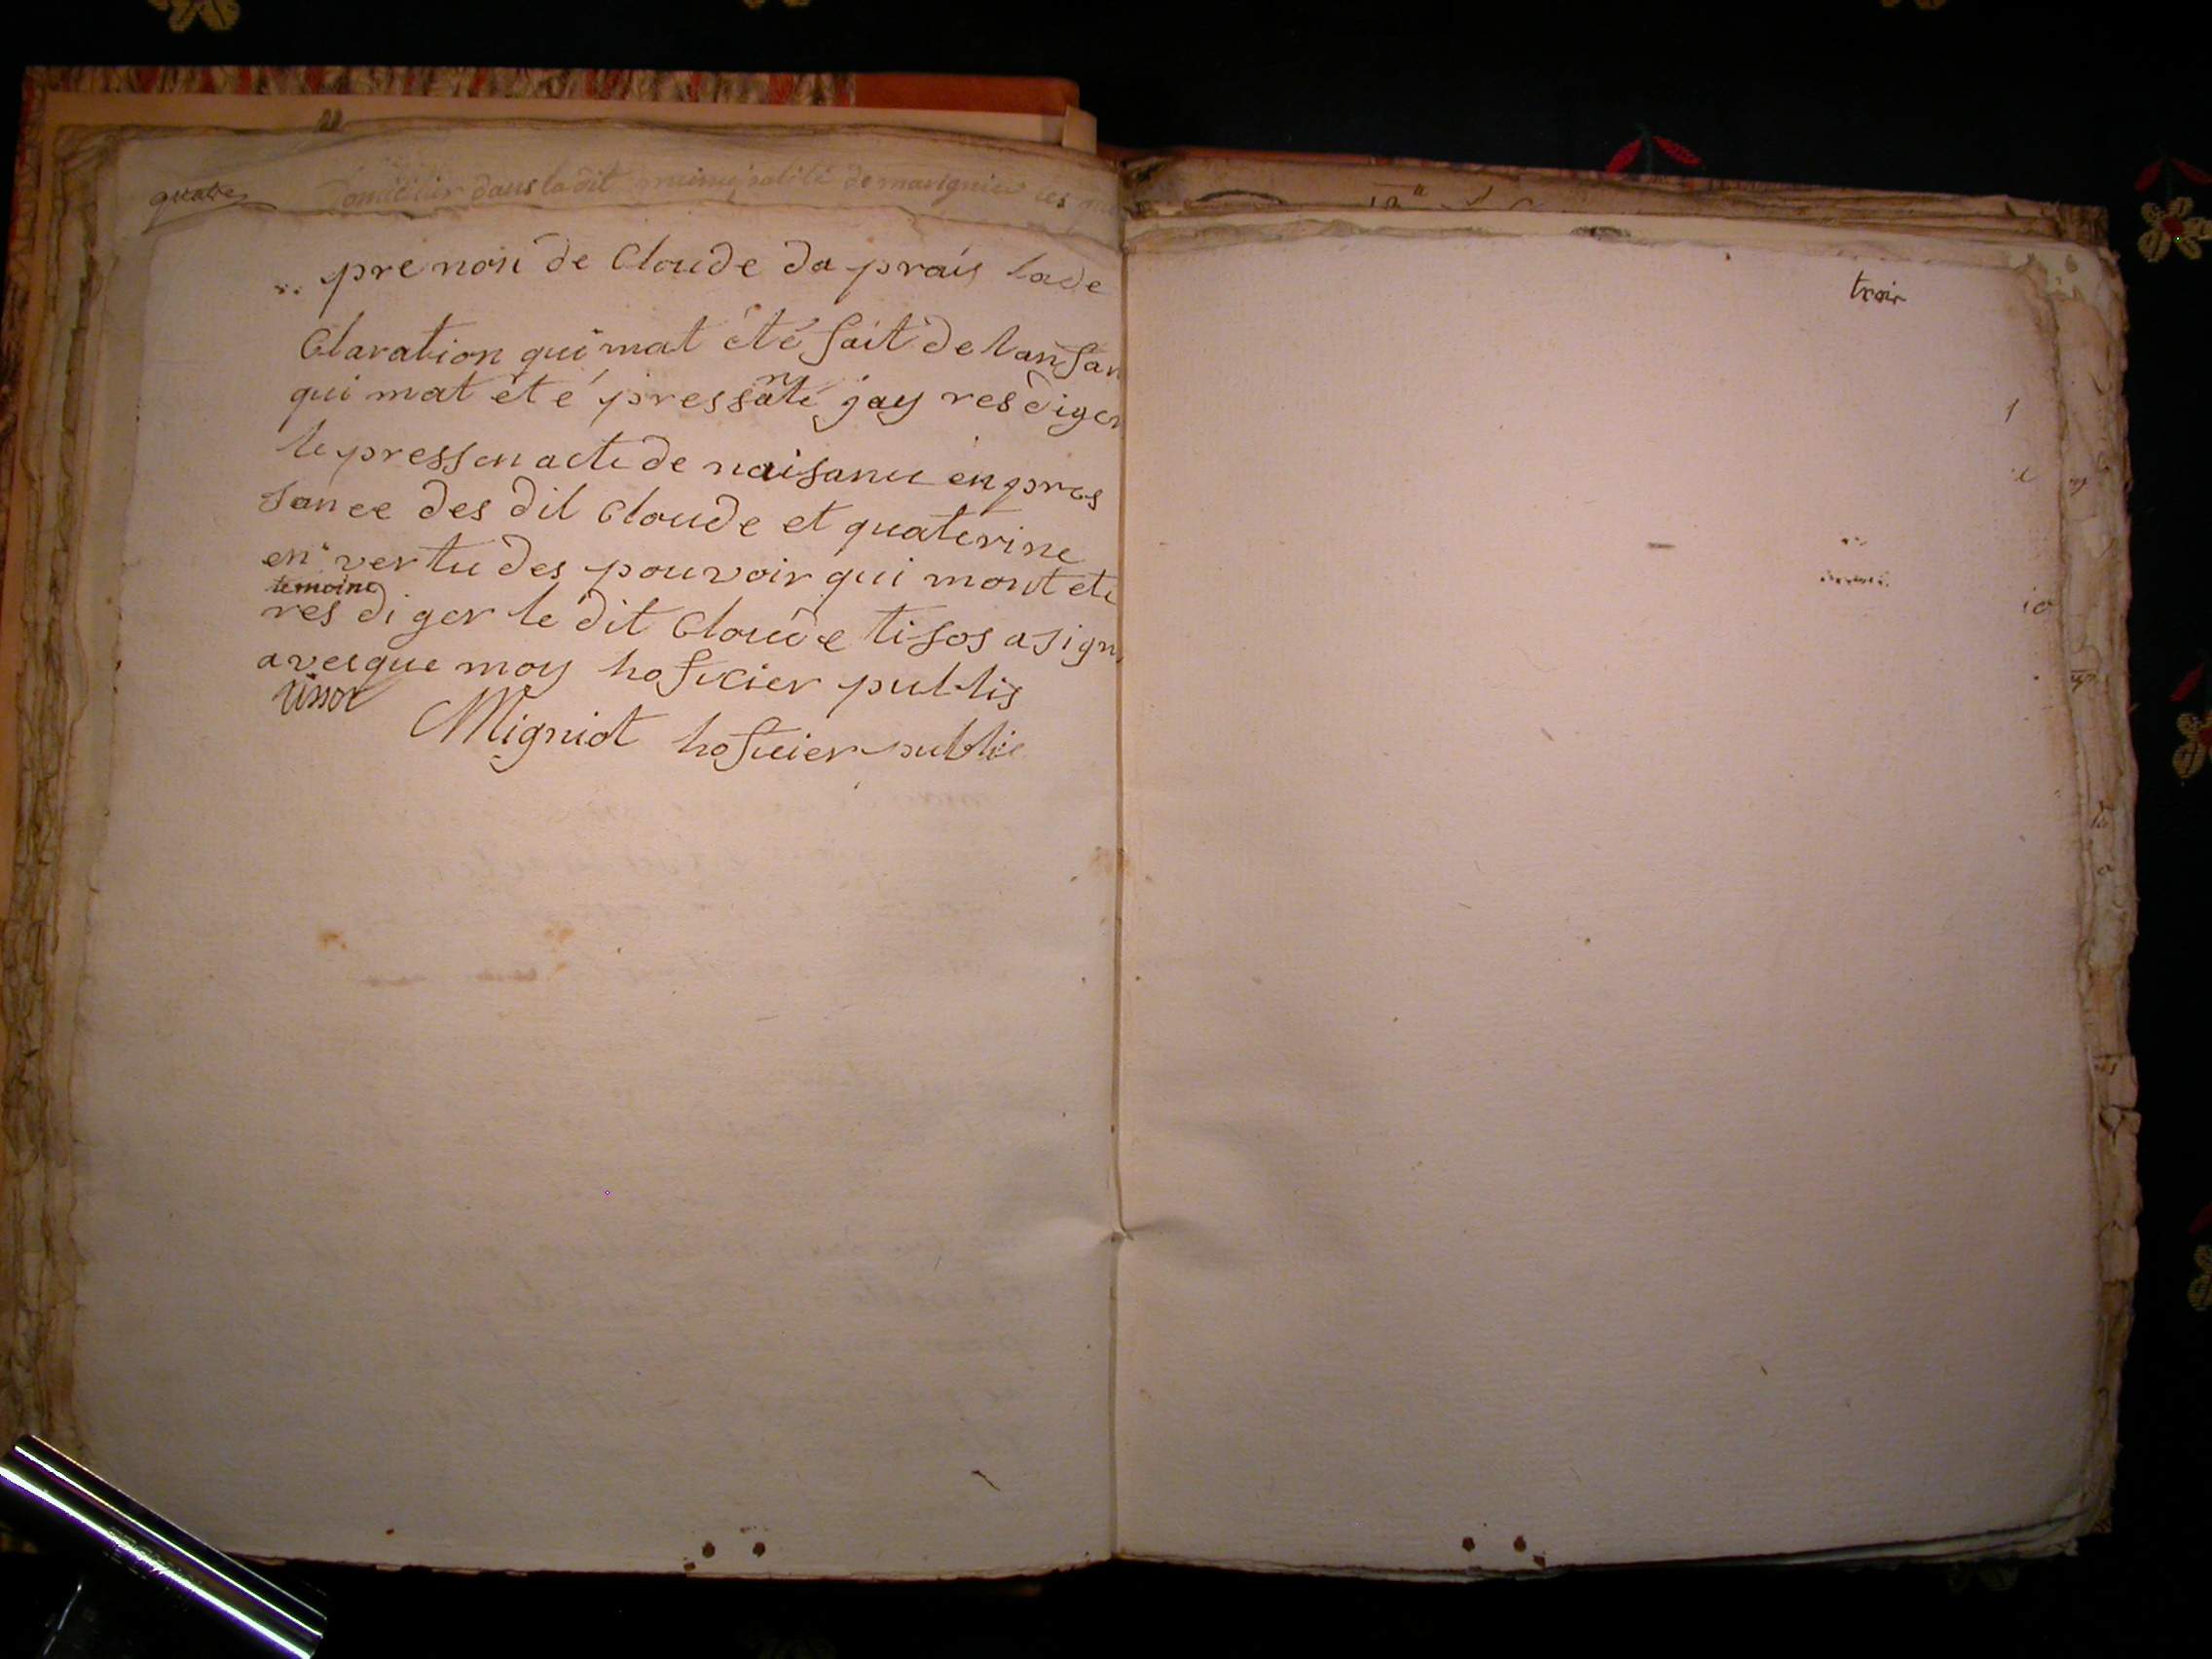 quatre
Domicilier dans la dit municipalité de marignier les
prenon de Cloude da prais lade
Claration qui mat été fait de lanfan
qui mat été pressante jay resdiger
le pressen acte de naisance en pres
sance des dit Cloude et quaterine
en vertu des pouvoir qui mont ete
temoins
resdiger le dit Cloude tisos a sign
avesque moy hoficier publis
tissot
Migniot hoficier public
troir